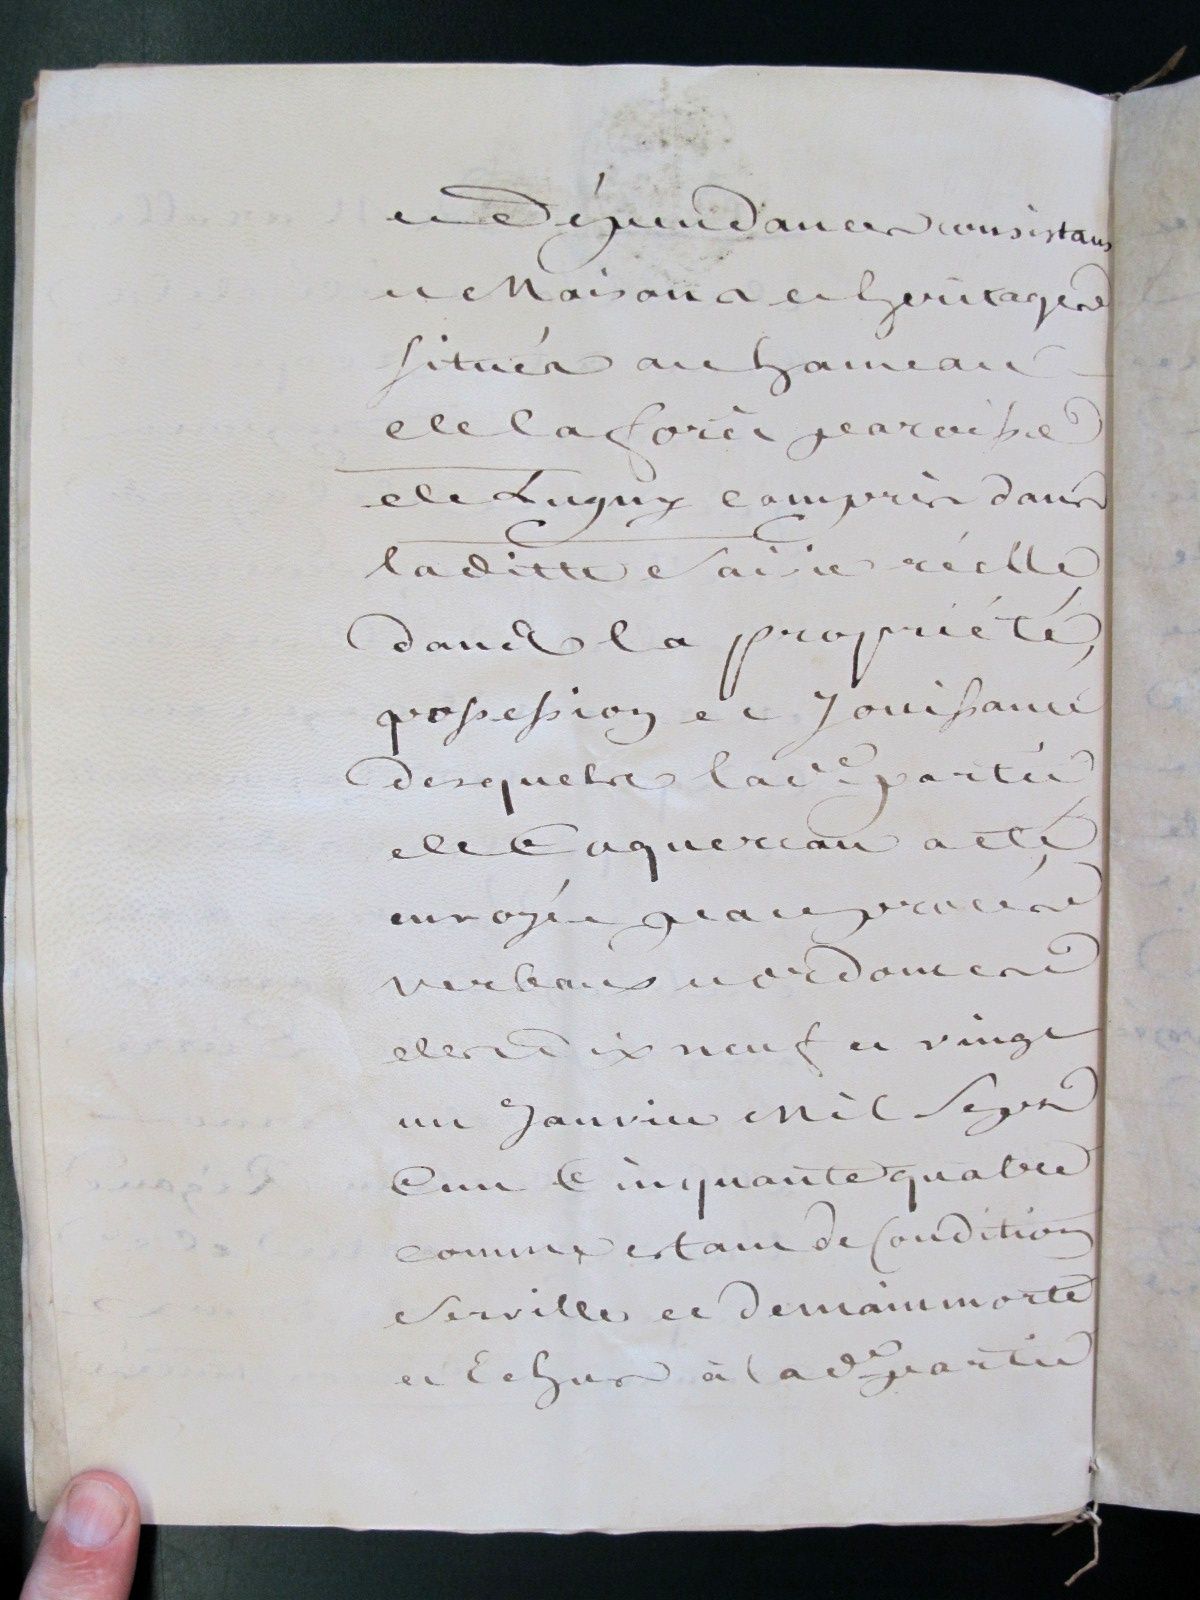 et Dépendances consistans
en Maisons et heritages
situés au hameau
de la forêt paroisse
de Lugny compris dans
la ditte Saisie réelle
dans la propriété,
possession et Jouissance
desquels la de. partie
de Coquereau a eté
envoyée par procés
verbaux et ordonces
des dix neuf et vingt
un Janvier Mil Sept
Cent Cinquante quatre
comme estant de Condition
Serville et de mainmorte
et Echus à la de. partie